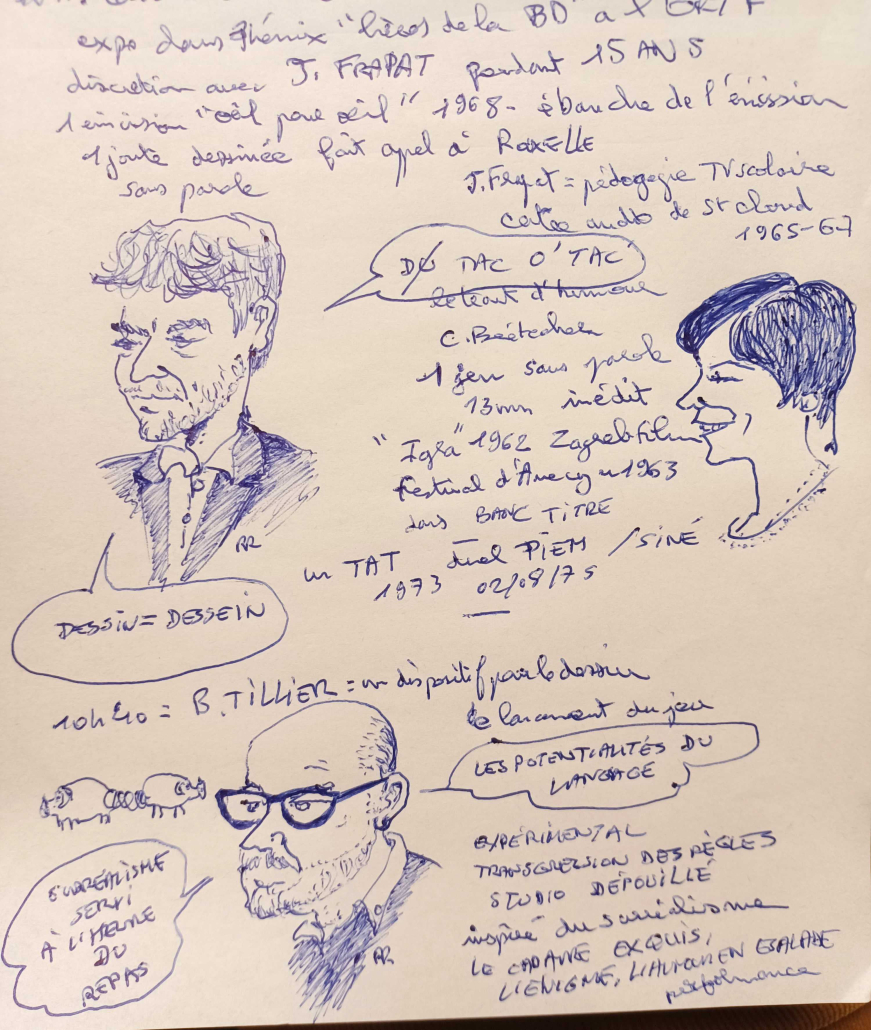 expo dans Phénix "héros de la BD" à l'ORTF
discretion avec J. FRAPAT pendant 15 ANS
1 émission "œil pour œil" 1968 - ébauche de l'émission
1 joute dessinée fait appel à ROXELLE
sans parole
J. Frapat = pédagogie TV scolaire
audio de St Cloud
1965-67
DU TAC O' TAC
d'humour
C. Brétecher
1 jeu sans parole
13mn inédit
"Igra" 1962 Zagreb Film
Festival d'Annecy 1963
dans BANC TITRE
un TAT duel PIEM / SINÉ
1973 02/08/75
RR
DESSIN = DESSEIN
10h40 = B. TILLIER = un dispositif par le dessin
le lancement du jeu
LES POTENTIALITÉS DU
LANGAGE
SURRÉALISME
SERVI
À L'HEURE
DU
REPAS
RR
EXPÉRIMENTAL
TRANSGRESSION DES RÈGLES
STUDIO DÉPOUILLÉ
inspiré du surréalisme
LE CADAVRE EXQUIS,
L'ÉNIGME, L'HUMOUR EN ESCALADE
performance